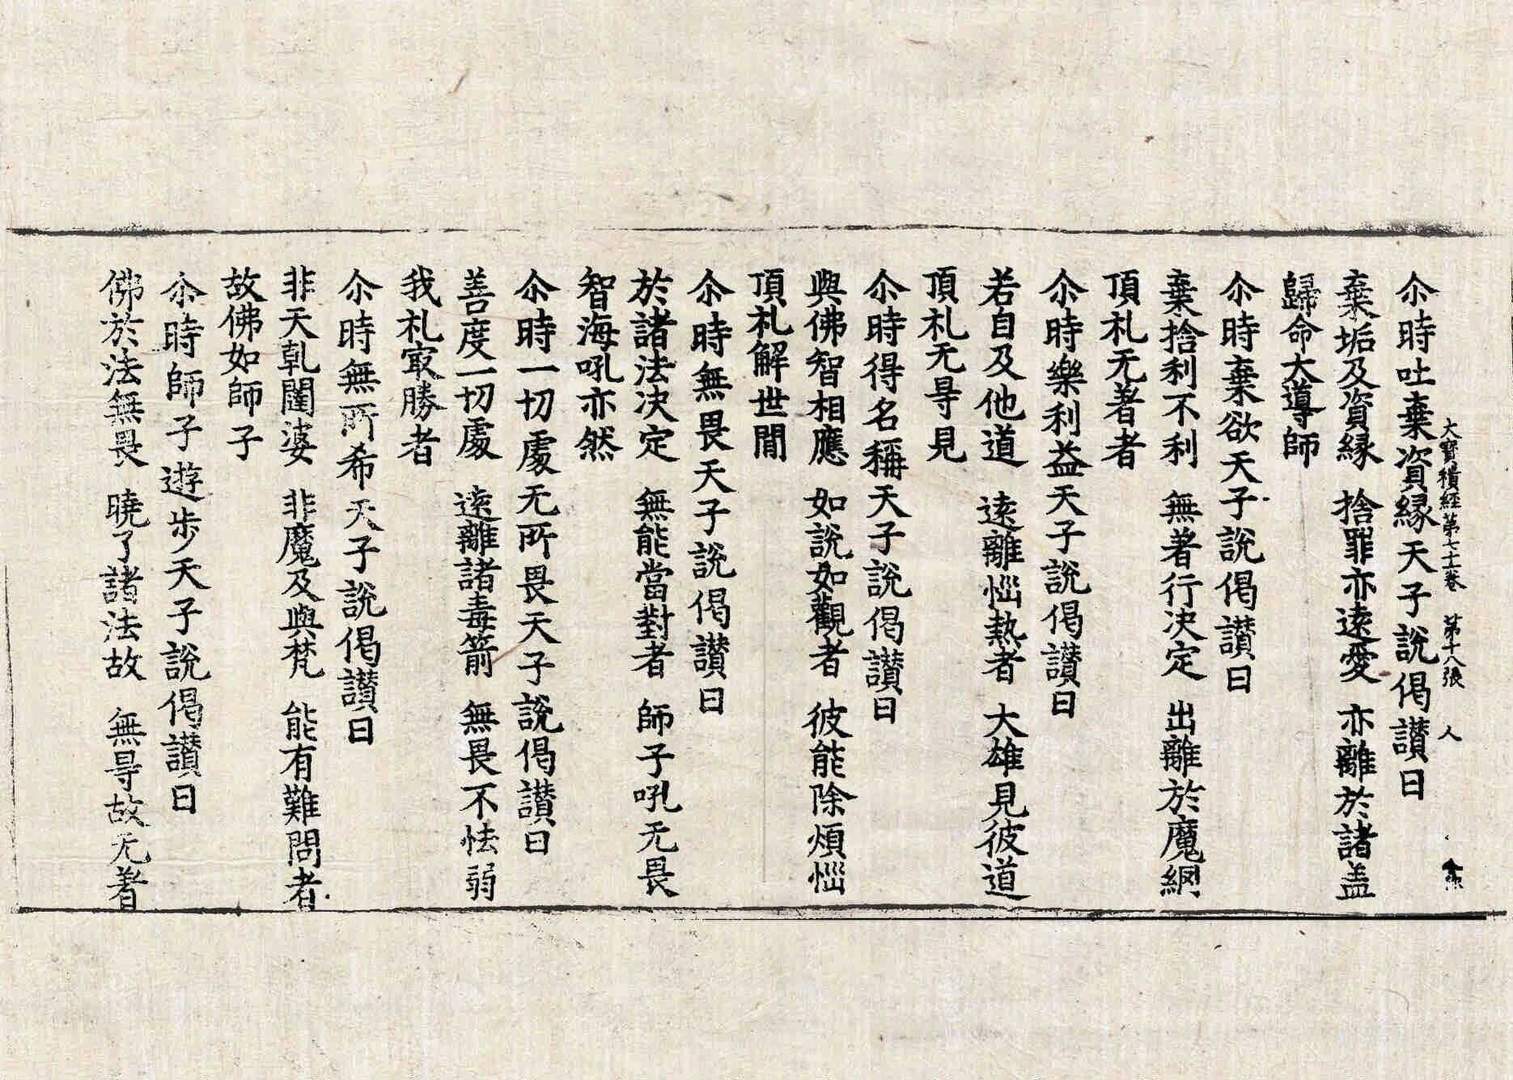 大寶積經第七十二卷 第十八張 人
尒時吐棄資縁天子說偈讃曰
棄垢及資縁 捨罪亦遠愛 亦離於諸盖
歸命大導師
尒時棄欲天子說偈讃曰
棄捨利不利 無著行決定 出離於魔網
頂札无著者
尒時樂利益天子說偈讃曰
若自及他道 遠離惱熱者 大雄見彼道
頂札无㝵見
尒時得名稱天子說偈讃曰
與佛智相應 如說如觀者 彼能除煩惱
頂札解世間
尒時無畏天子說偈讃曰
於諸法決定 無能當對者 師子吼无畏
智海吼亦然
尒時一切處无所畏天子說偈讃曰
善度一切處 遠離諸毒箭 無畏不怯弱
我札㝡勝者
尒時無所希天子說偈讃曰
非天乹闥婆 非魔及與梵 能有難問者
故佛如師子
尒時師子遊步天子說偈讃曰
佛於法無畏 曉了諸法故 無㝵故无著